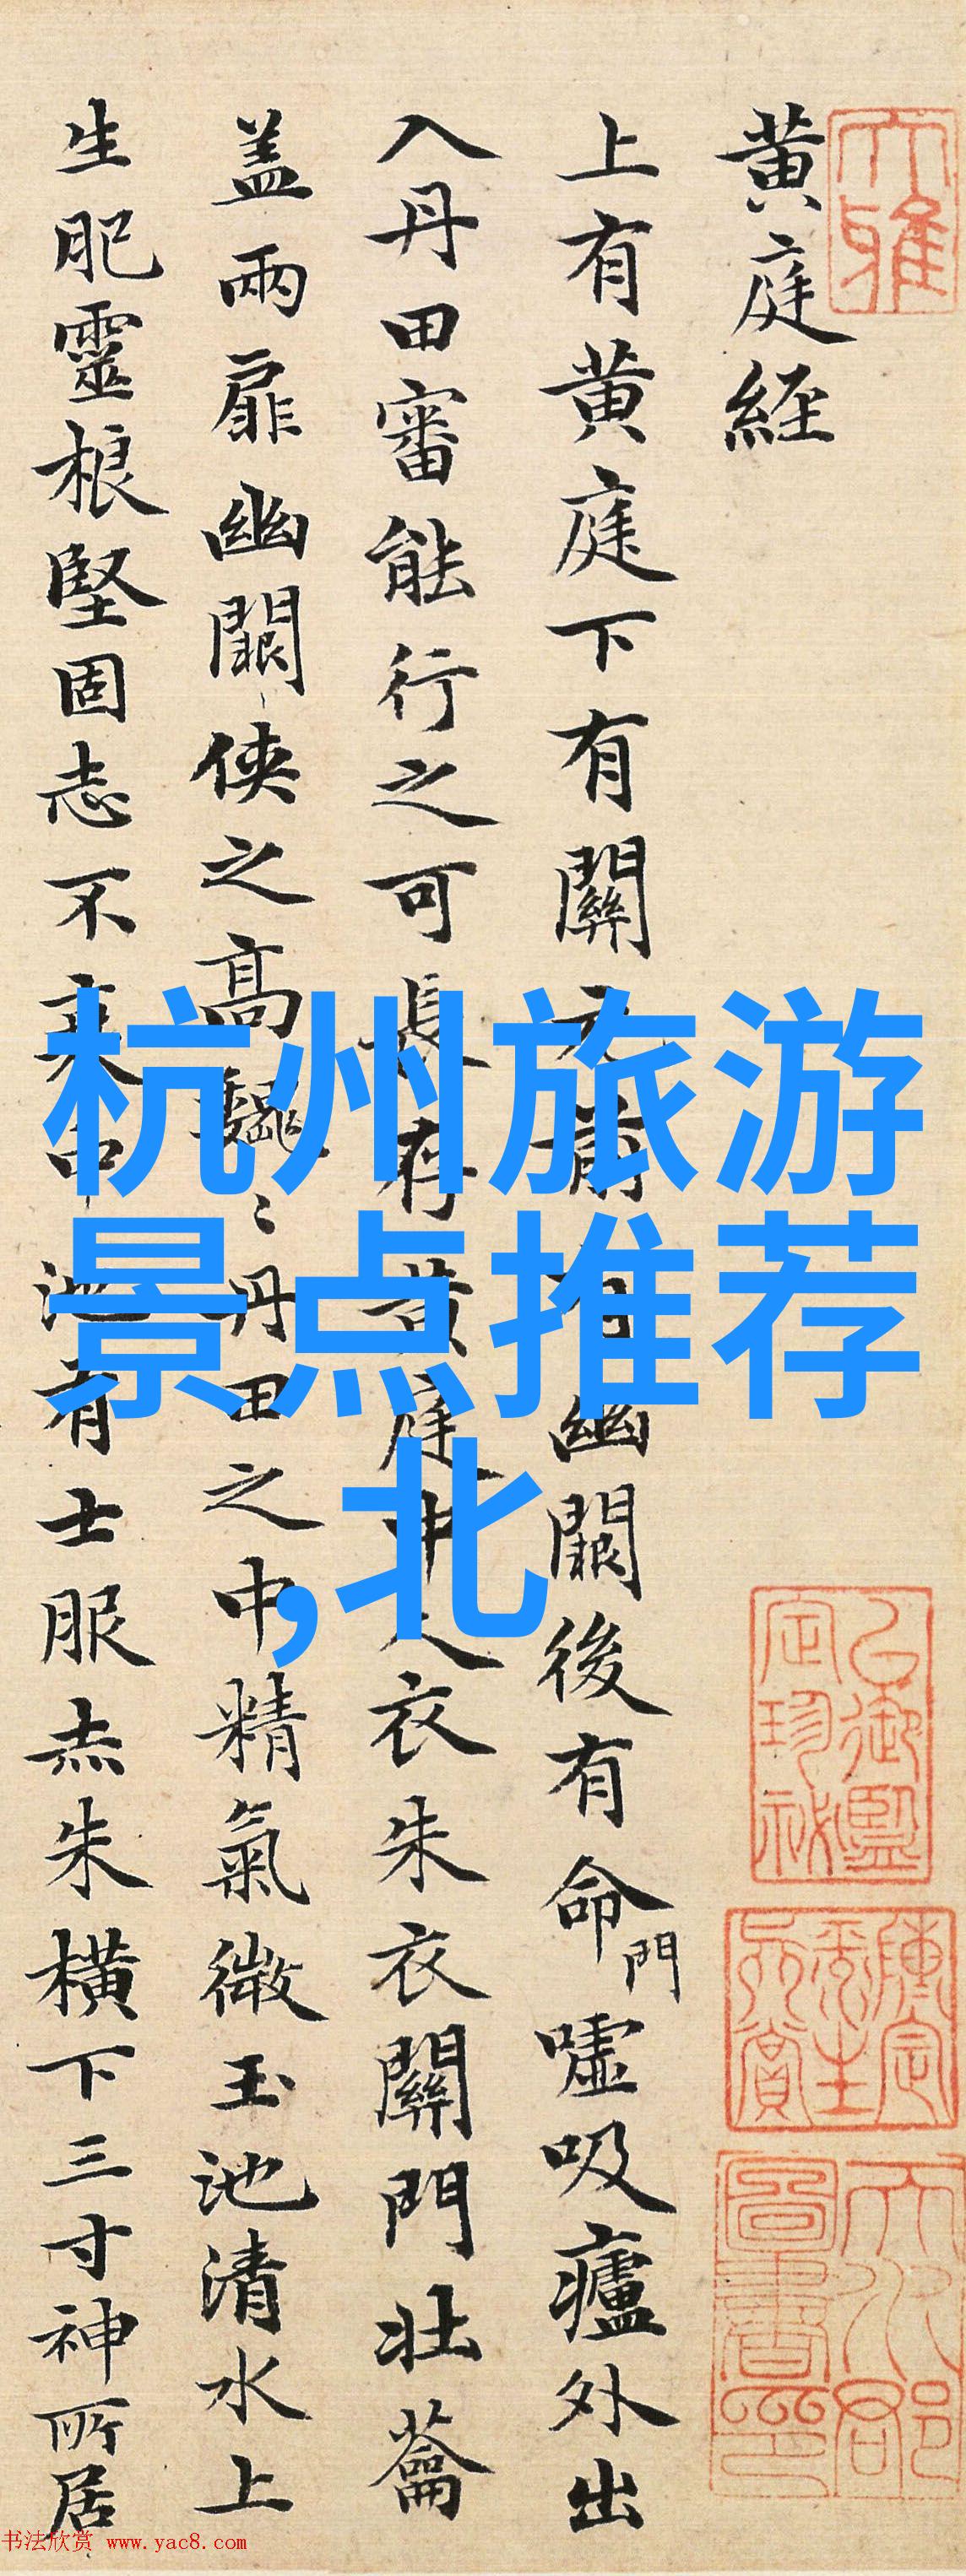 黄庭经
上有黄庭下有關元前有幽闕後有命門嘘吸廬外出
入丹田審能行之可長存黄庭中人衣朱衣關門壮蘥
盖兩扉幽闕侠之高巍〻丹田之中精氣微玉池清水上
生肥靈根堅固志不衰中池有士服赤朱横下三寸神所居
杭州旅游
景点推荐
,北
大雅
乙
御
定
珍
書法欣赏 www.yac8.com